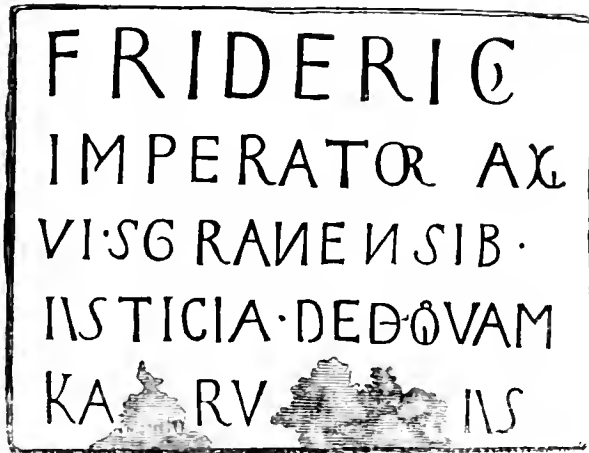 FRIDERIC
IMPERATOR AX
VI·SG RANENSIB·
I\STICIA·DED·QVAM
KA RV I\S